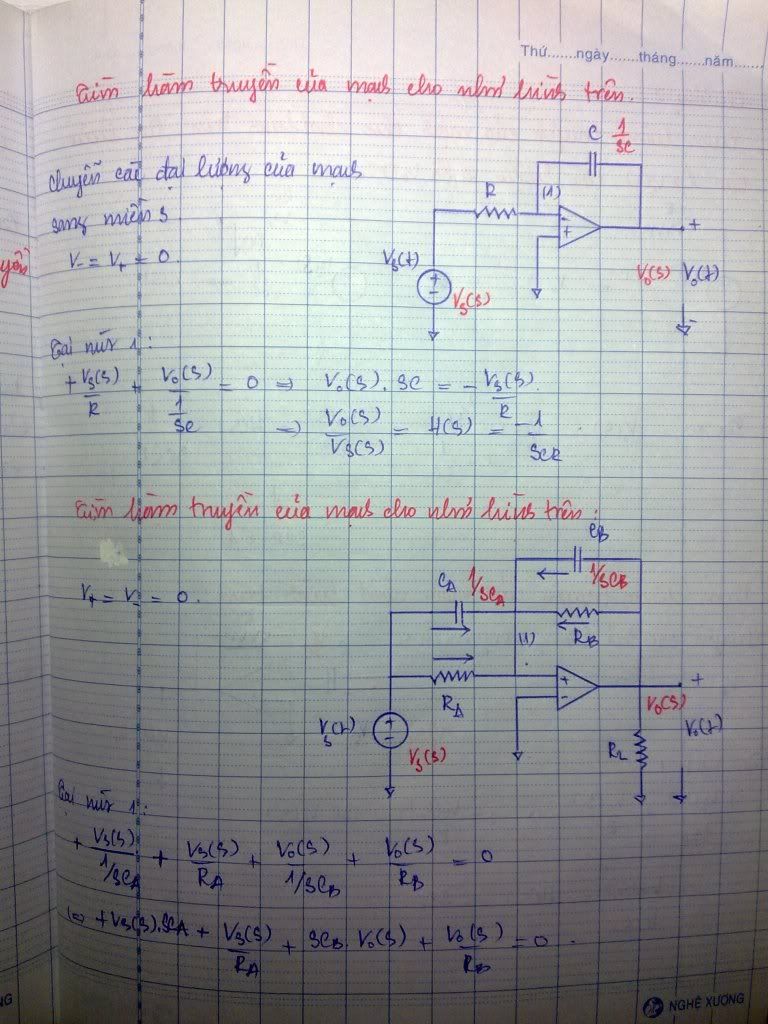 Thứ.......ngày.......tháng.......năm.......
Tìm hàm truyền của mạch cho như hình trên.
C 1/sC
chuyển các đại lượng của mạch
sang miền s
R (1)
- +
yền
V₋ = V₊ = 0
Vs(t) + − Vs(s)
+ Vo(s) Vo(t) −
Tại nút 1:
+ Vs(s)/R + Vo(s)/(1/sC) = 0 => Vo(s).sC = − Vs(s)/R.
=> Vo(s)/Vs(s) = H(s) = −1/sCR
Tìm hàm truyền của mạch cho như hình trên:
CB
CA 1/sCA 1/sCB
V₊ = V₋ = 0.
RB
(1)
RA + − + Vo(s)
Vs(t) + − Vs(s) RL Vo(t)
Tại nút 1:
+ Vs(s)/(1/sCA) + Vs(s)/RA + Vo(s)/(1/sCB) + Vo(s)/RB = 0
<=> +Vs(s).sCA + Vs(s)/RA + sCB.Vo(s) + Vo(s)/RB = 0.
NG
NGHỆ XƯƠNG